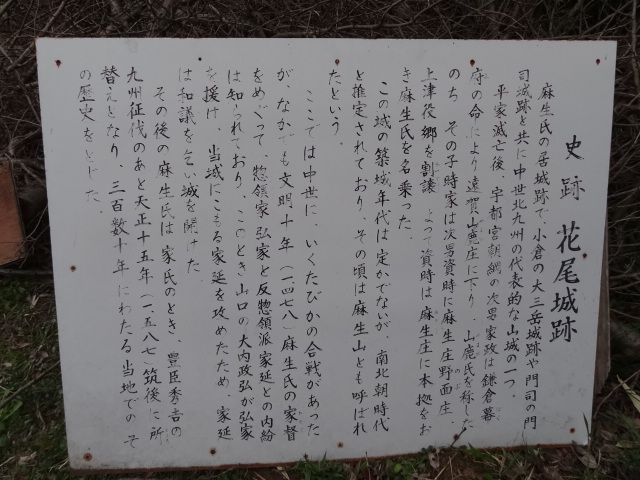 史跡 花尾城跡
麻生氏の居城跡で、小倉の大三岳城跡や門司の門
司城跡と共に中世北九州の代表的な山城の一つ。
平家滅亡後、宇都宮朝綱の次男家政は鎌倉幕
府の命により遠賀山鹿庄に下り、山鹿氏を称した
のち その子時家は次男資時に麻生庄野面庄
上津役郷を割譲 よって資時は麻生庄に本拠をお
き麻生氏を名乗った。
この城の築城年代は定かでないが、南北朝時代
と推定されており、その頃は麻生山とも呼ばれ
たという。
ここでは中世に、いくたびかの合戦があった
が、なかでも文明十年(一四七八)麻生氏の家督
をめぐって、惣領家弘家と反惣領派家延との内紛
は知られており、このとき山口の大内政弘が弘家
を援け、当城にこもる家延を攻めたため、家延
は和議を乞い城を開けた。
その後の麻生氏は家氏のとき、豊臣秀吉の
九州征伐のあと天正十五年(一五八七)筑後に所
替えとなり、三百数十年にわたる当地でのそ
の歴史をとじた。